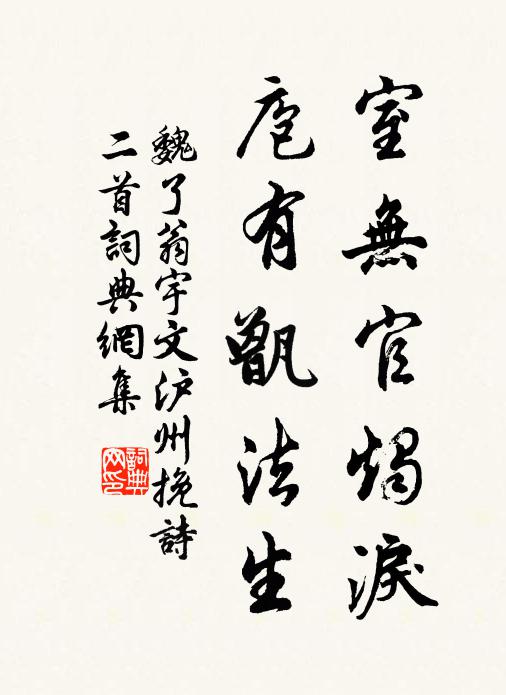 室無官燭淚
庖有甑法生
魏了翁宇文沪州挽詩
二首詞典網集
詞典网印